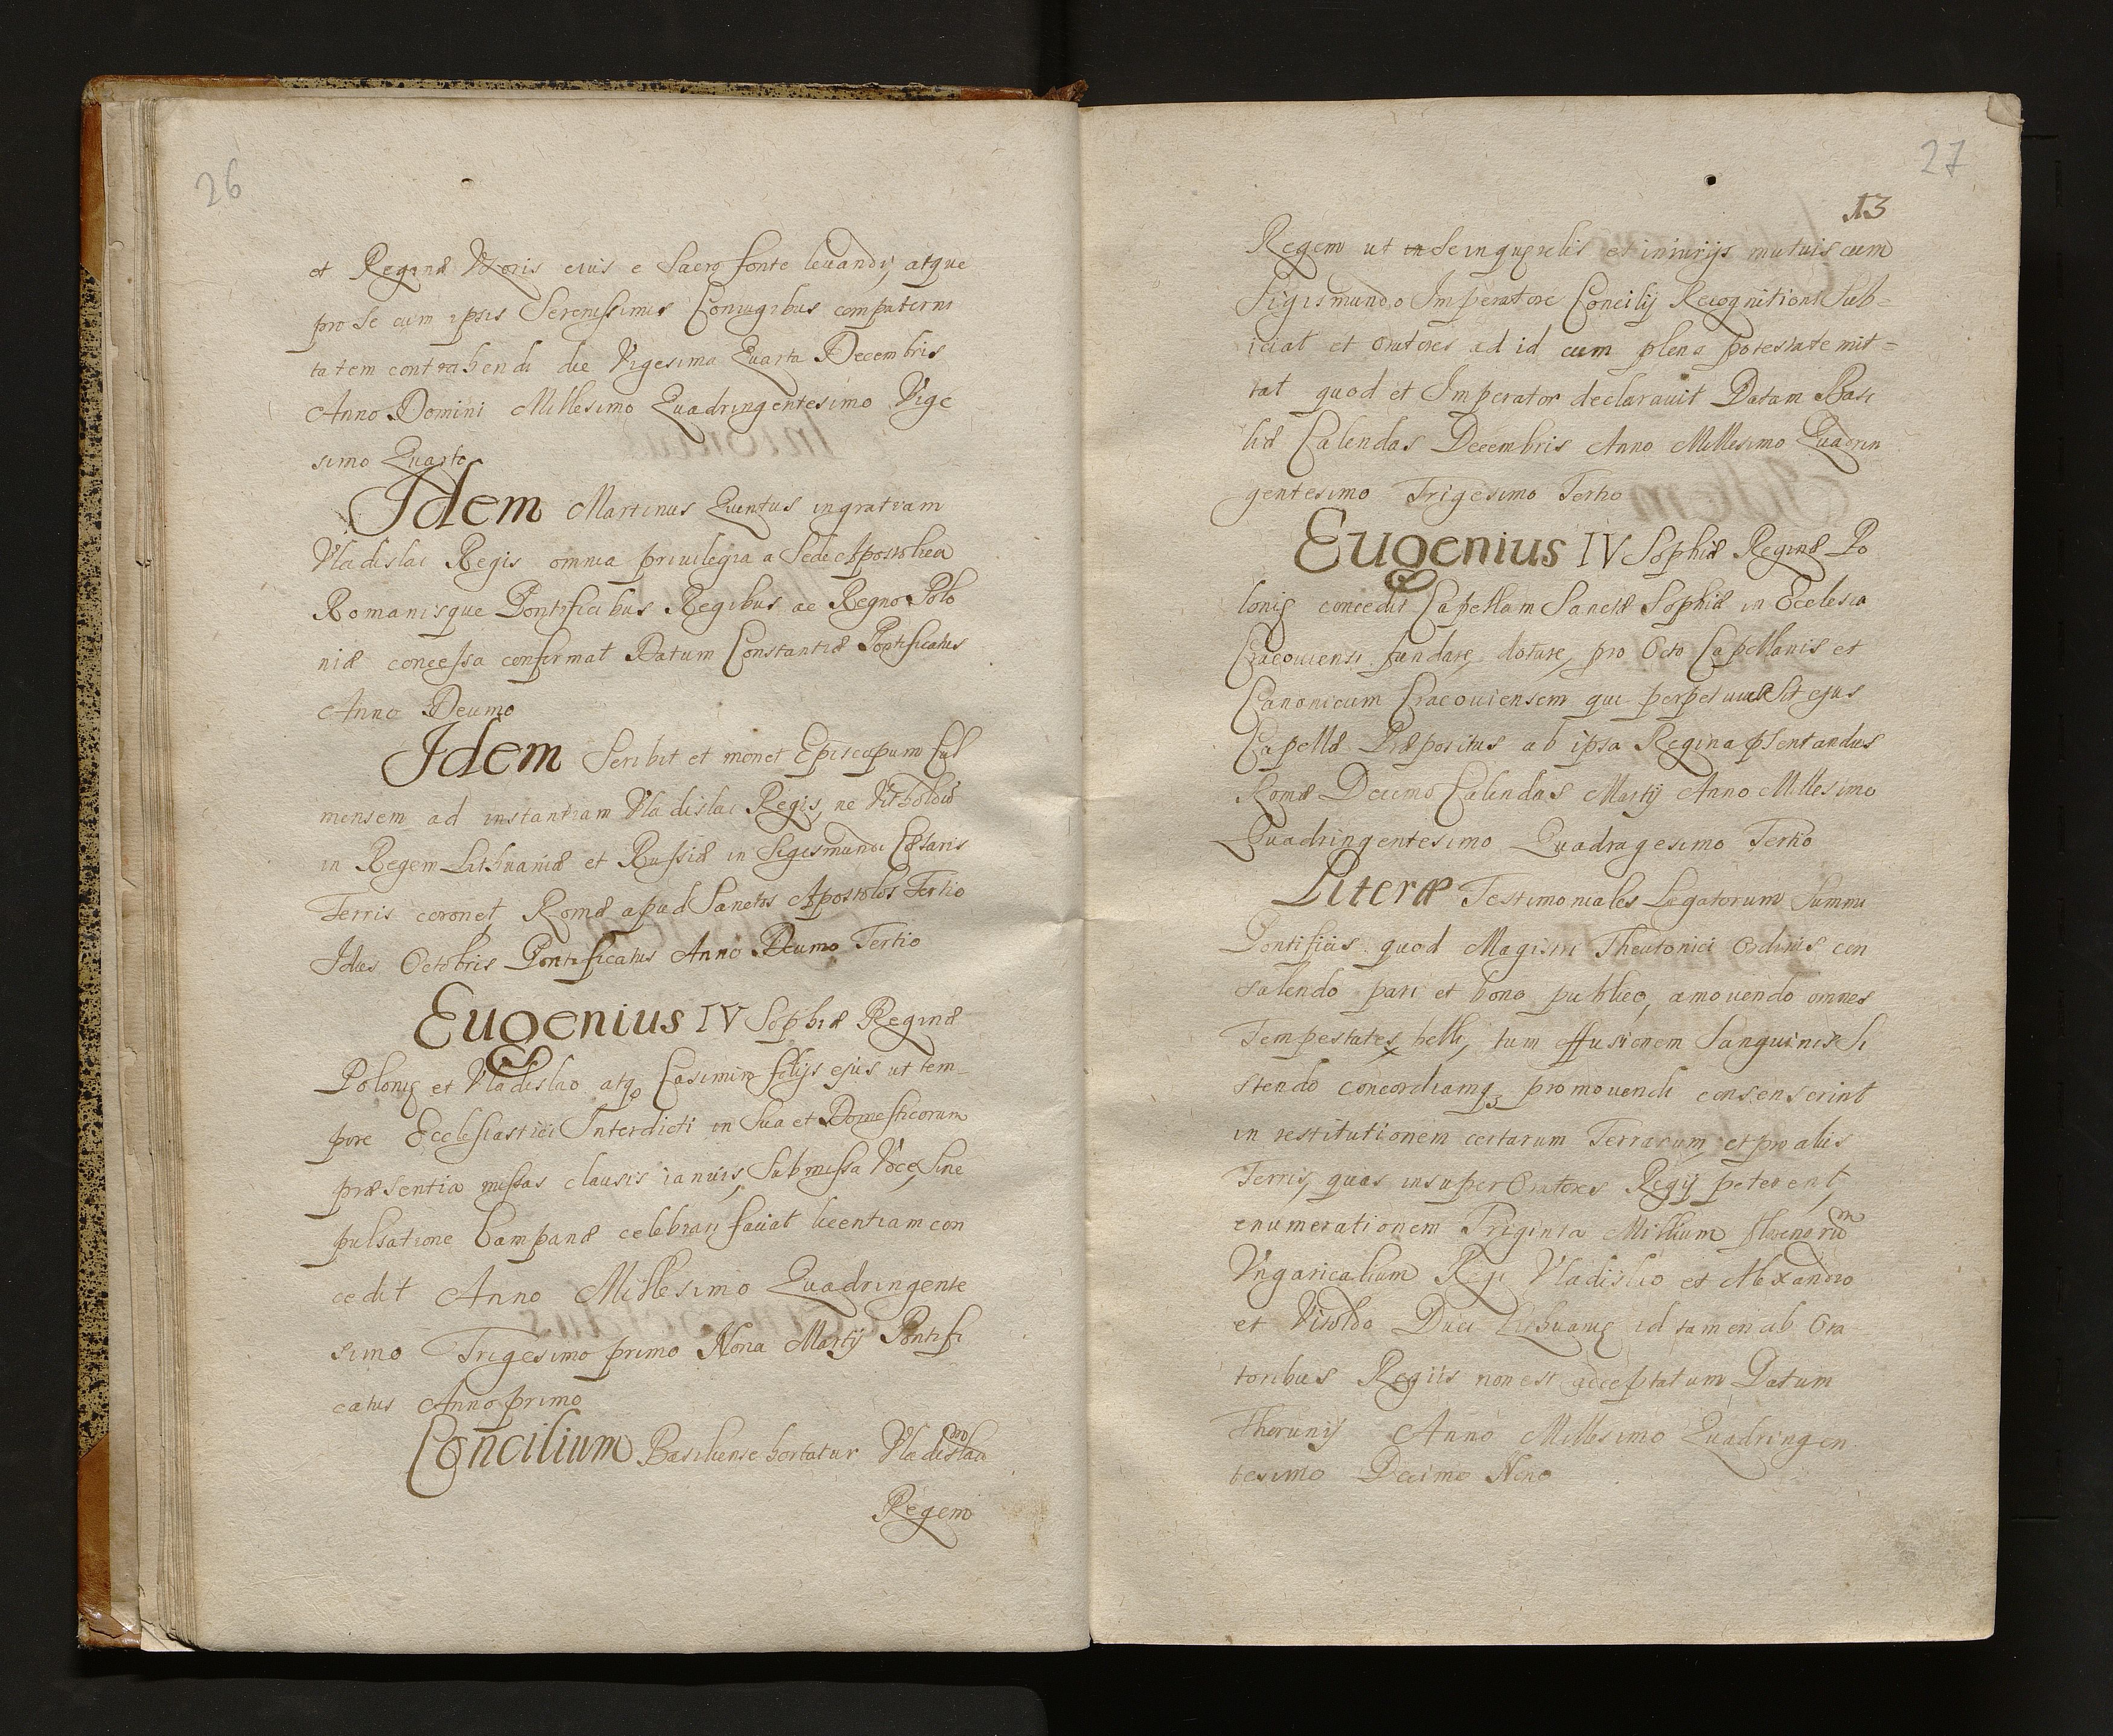 26
et Reginæ Uxoris eius e Sacro fonte leuandi, atque
pro Se cum ipsis Serenissimis Coniugibus compaterni
tatem contrahendi die Vigesima Quarta Decembris
Anno Domini Millesimo Quadringentesimo Vige
simo Quarto
Idem Martinus Quintus in gratiam
Vladislai Regis omnia priuilegia a Sede Apostolica
Romanisque Pontificibus Regibus ac Regno Polo
niæ concessa confirmat Datum Constantiæ Pontificatus
Anno Decimo
Idem Scribit et monet Episcopum Cul
mensem ad instantiam Vladislai Regis, ne Vitholdū
in Regem Lithuaniæ et Russiæ in Sigismundi Cæsaris
Terris coronet, Romæ apud Sanctos Apostolos Tertio
Idus Octobris Pontificatus Anno Decimo Tertio
Eugenius IV Sophiæ Reginæ
Polonię et Vladislao atq₃ Casimiro filijs ejus ut tem-
pore Ecclesiastici Interdicti in Sua et Domesticorum
præsentia missas clausis ianuis, Submissa Voce, Sine
pulsatione Campanæ celebrari faciat licentiam con
cedit Anno Millesimo Quadringente
simo Trigesimo primo Nona Martij Pontifi
catus Anno primo
Concilium Basiliense hortatur Vladislaum
Regem
27
13
Regem ut in Se in querelis et iniurijs mutuis cum
Sigismundo Imperatore Concilij Recognitioni Sub=
iciat et oratores ad id cum plena potestate mit=
tat quod et Imperator declarauit Datam Basi
liæ Calendas Decembris Anno Millesimo Quadrin
gentesimo Trigesimo Tertio
Eugenius IV Sophiæ Reginæ Po
lonię concedit Capellam Sanctæ Sophiæ in Ecclesia
Cracouiensi fundare, dotare, pro Octo Capellanis et
Canonicum Cracouiensem qui perpetuus Sit ejus
Capellæ Præpositus ab ipsa Regina psentandus
Romæ Decimo Calendas Martij Anno Millesimo
Quadringentesimo Quadragesimo Tertio
Literæ Testimoniales Legatorum Summi
Pontificis quod Magistri Theutonici Ordinis con
sulendo paci et bono publico, amouendo omnes
Tempestates belli, tum effusionem Sanguinis Si
stendo concordiamq₃ promouendi consenserint
in restitutionem certarum Terrarum et pro aliis
Terris, quas insuper Oratores Regij peterent,
enumerationem Triginta Millium florenorum
Vngaricalium Regi Vladislao et Alexandro
et Vitoldo Duci Lithuanię id tamen ab Ora
toribus Regiis non est acceptatum Datum
Thorunij Anno Millesimo Quadringen
tesimo Decimo Nono